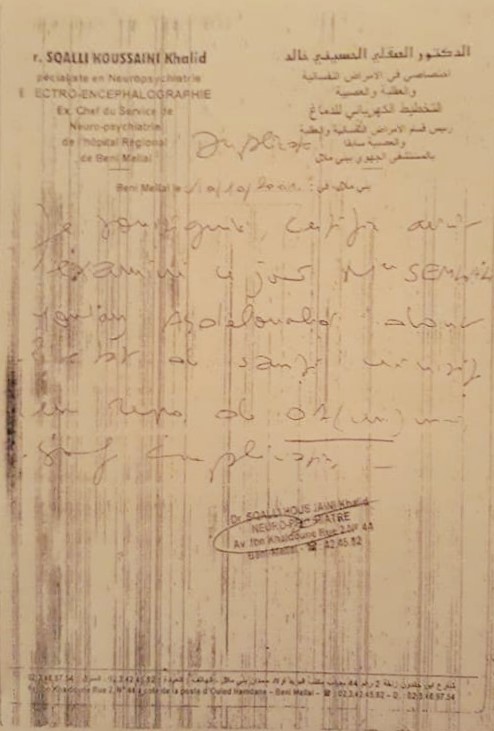 r. SQALLI HOUSSAINI Khalid
pécialiste en Neuropsychiatrie
E ECTRO-ENCEPHALOGRAPHIE
Ex. Chef du Service de
Neuro-psychiatrie
de l'hôpital Régional
de Beni Mellal
الدكتور الصقلي الحسيني خالد
اختصاصي في الامراض النفسانية
والعقلية والعصبية
التخطيط الكهربائي للدماغ
رئيس قسم الامراض النفسانية والعقلية
والعصبية سابقا
بالمستشفى الجهوي ببني ملال
Duplicata
Beni Mellal le بني ملال، في:
Je soussigné, certifie avoir
examiné ce jour Mr
Abdelouahed dont
l'état de santé nécessite
un repos de 01 (un) mois
sauf complications
Dr SQALLI HOUSSAINI Khalid
NEURO-PSYCHIATRE
Av. Ibn Khaldoune Rue 2 N° 44
Beni Mellal - ☎ 42.45.82
Khaldoune Rue 2, N° 44 à côté de la poste d'Ouled Hamdane - Beni Mellal - ☎ : 02.3.42.45.82 - D. : 02.3.48.97.54